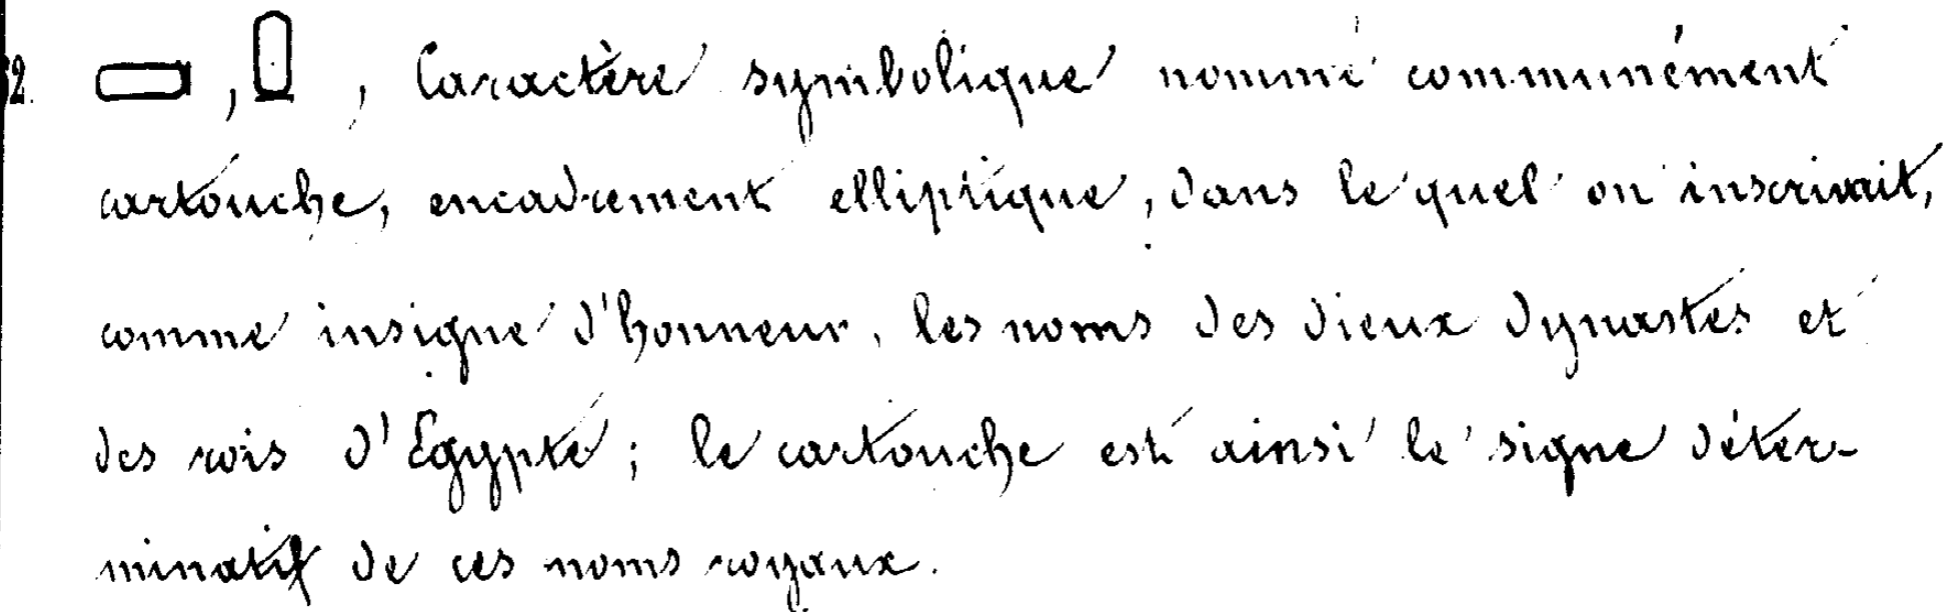 2. 𓍷 , 𓍷 , Caractère symbolique nommé communément
cartouche, encadrement elliptique, dans le quel on inscrivait,
comme insigne d'honneur, les noms des dieux dynastes et
des rois d'Egypte ; le cartouche est ainsi le signe déter-
minatif de ces noms royaux.